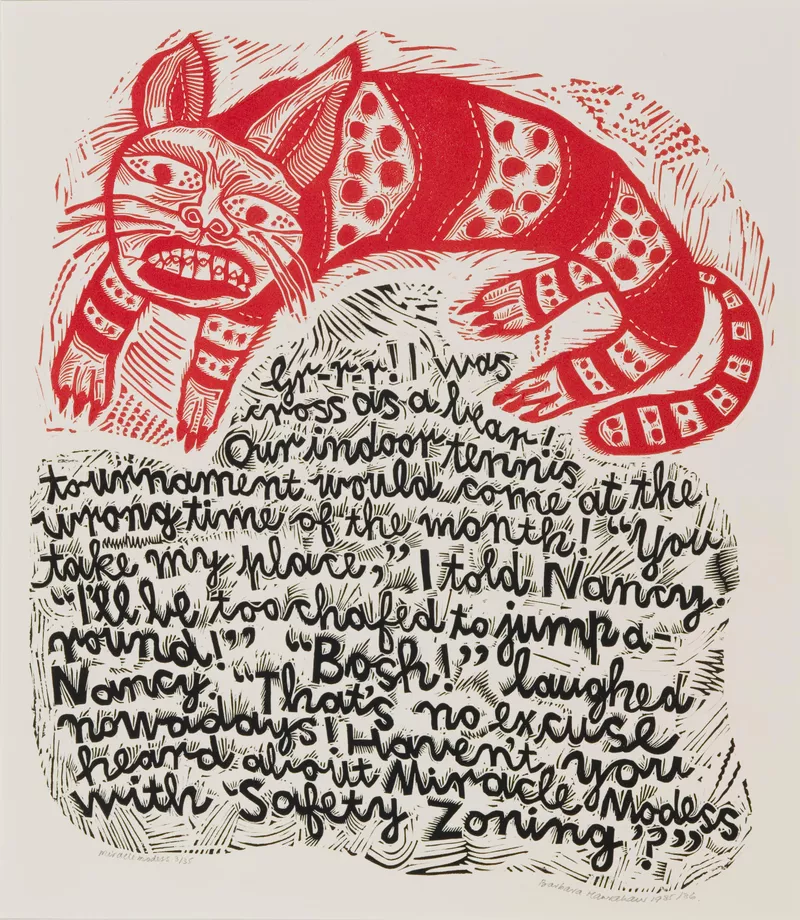 Gr-r-r! I was
cross as a bear!
Our indoor tennis
tournament would come at the
wrong time of the month! “You
take my place,” I told Nancy.
“I'll be too chafed to jump a-
round!” “Bosh!” laughed
Nancy. “That's no excuse
nowadays! Haven't you
heard about Miracle Modess
with ‘Safety Zoning’?”
Miracle modess 3/35
Barbara Hanrahan